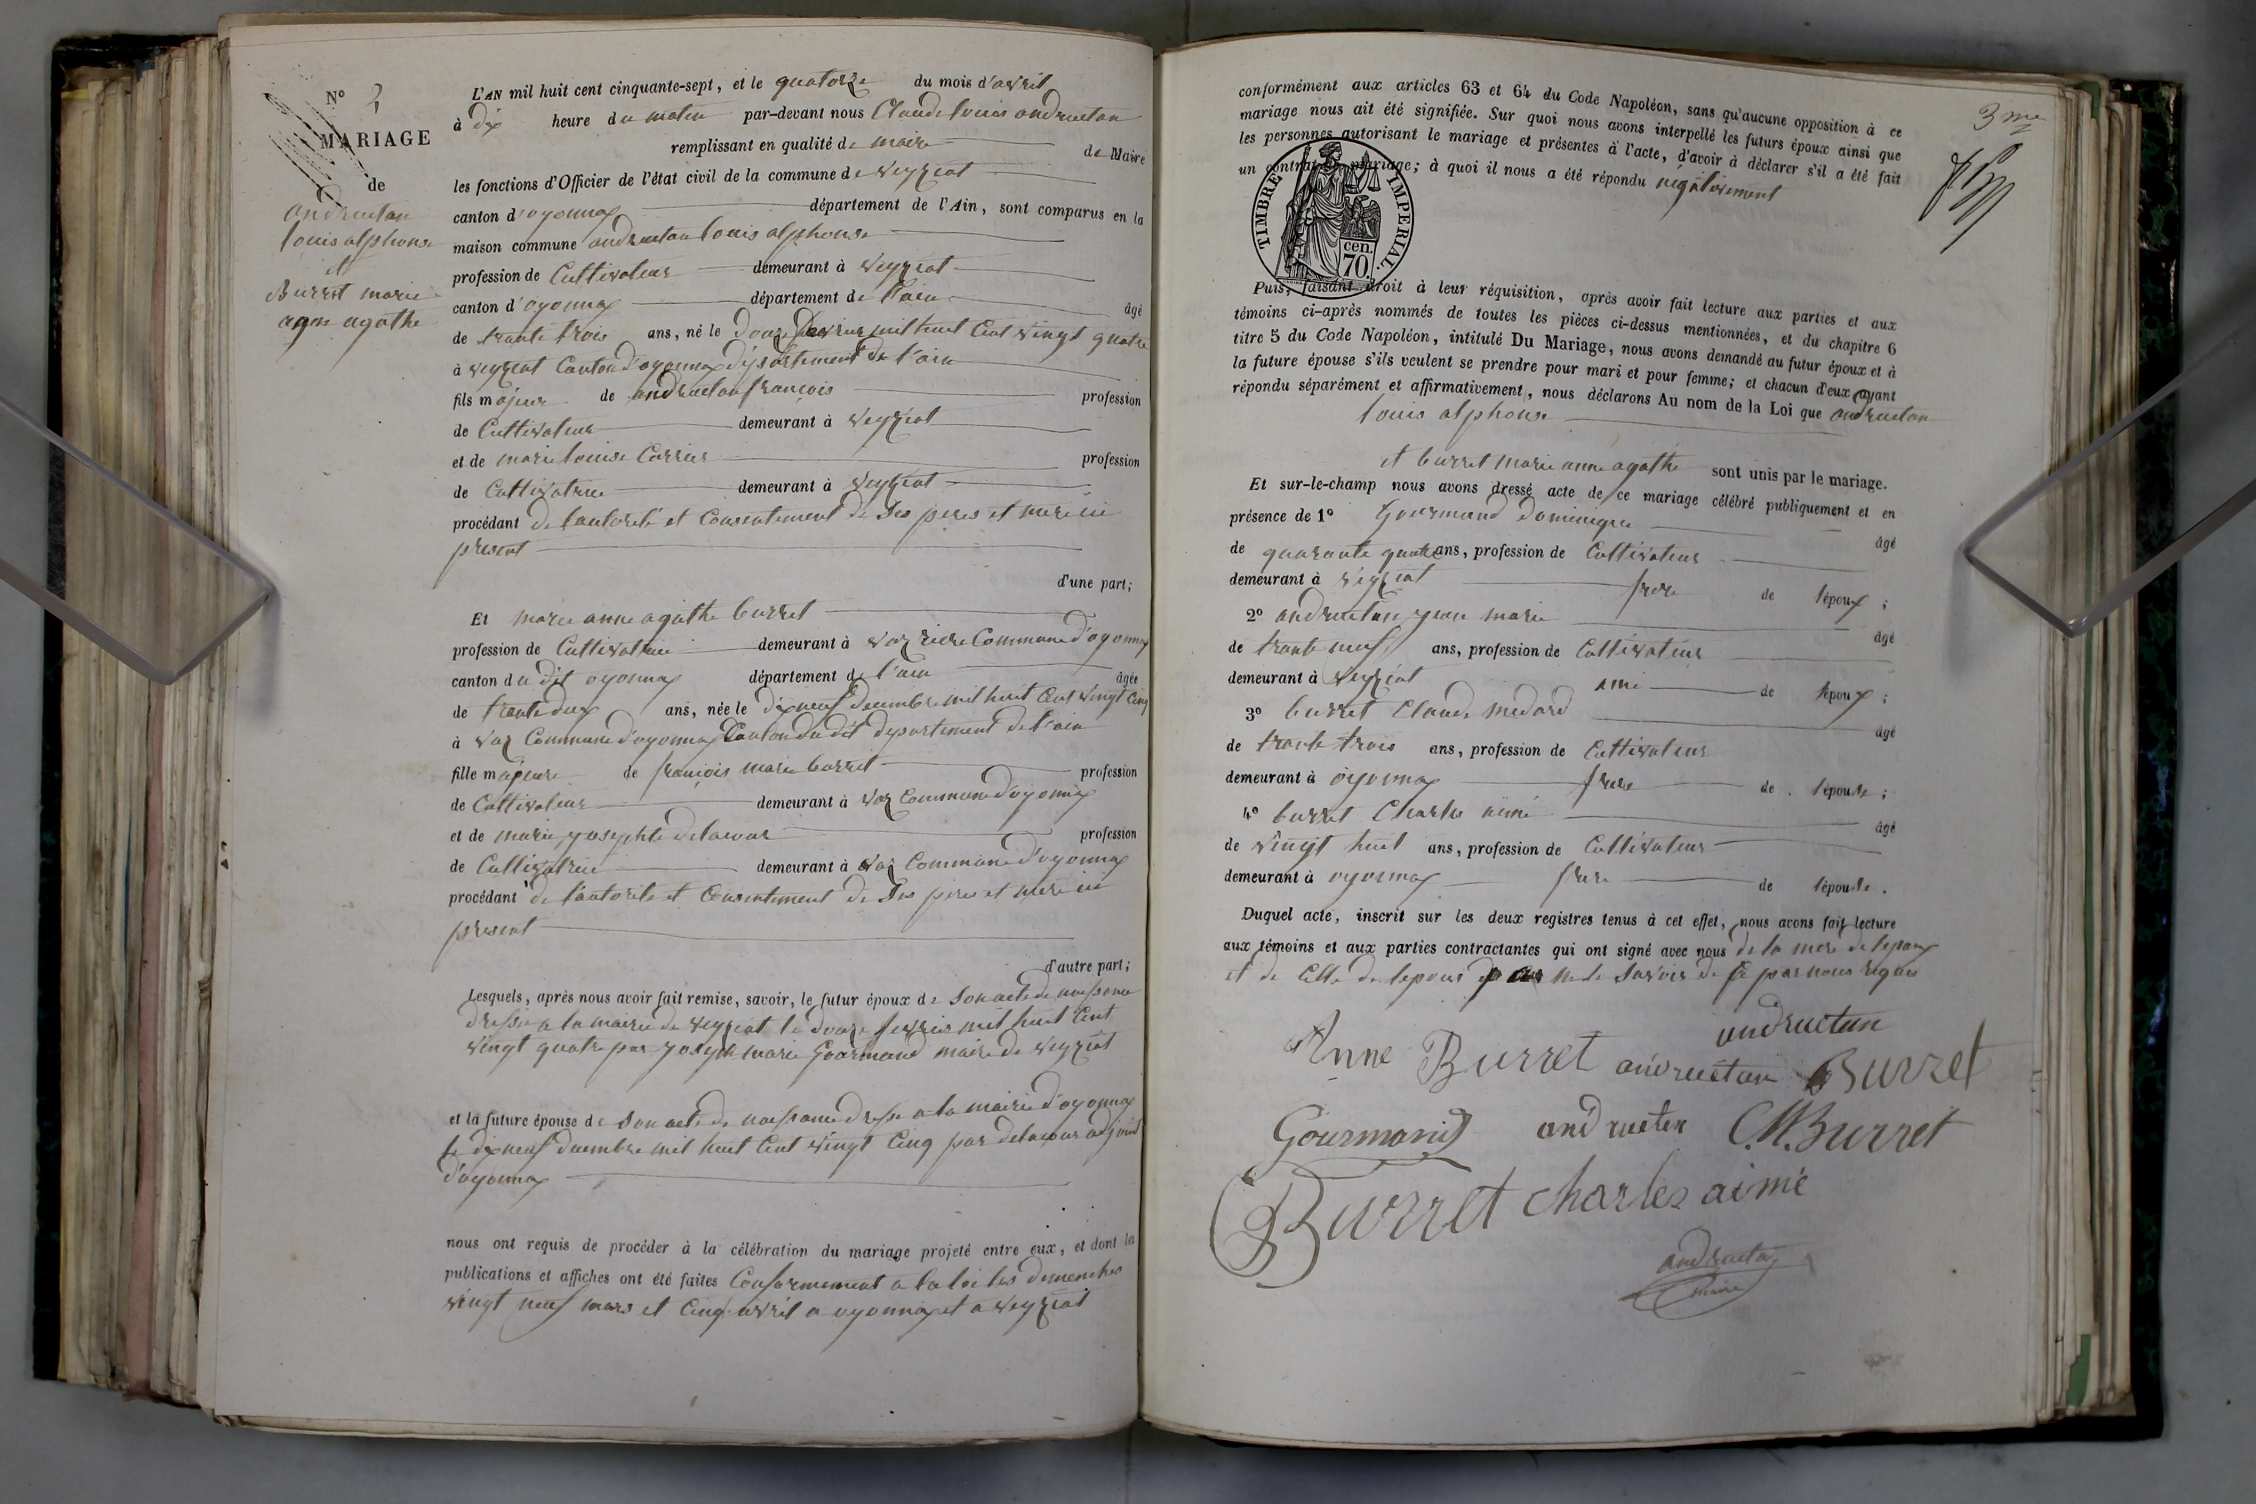 N° 2
MARIAGE
de
andruetan
louis alphonse
et
Burret marie
anne agathe
L'AN mil huit cent cinquante-sept, et le quatorze du mois d'avril
à dix heure du matin par-devant nous Claude louis andruetan
remplissant en qualité de maire de Maire
les fonctions d'Officier de l'état civil de la commune de veyziat
canton d'oyonnax département de l'Ain, sont comparus en la
maison commune andruetan louis alphonse
profession de Cultivateur demeurant à veyziat
canton d'oyonnax département de l'ain âgé
de trante trois ans, né le douze fevrier mil huit Cent vingt quatre
à veyziat Canton d'oyonnax département de l'ain
fils majeur de andruetan françois profession
de Cultivateur demeurant à veyziat
et de marie louise Carrier profession
de Cultivatrice demeurant à veyziat
procédant de l'autorité et Consentement de Ses peres et mere ici
present
d'une part;
Et marie anne agathe burret
profession de Cultivatrice demeurant à Commune d'oyonnax
canton du dit oyonnax département de l'ain âgée
de trante deux ans, née le dix neuf decembre mil huit Cent vingt Cinq
à Commune d'oyonnax Canton du dit departement de l'ain
fille majeure de françois marie burret profession
de Cultivateur demeurant à Commune d'oyonnax
et de marie josephte delacour profession
de Cultivatrice demeurant à Commune d'oyonnax
procédant de l'autorite et Consentement de Ses peres et mere ici
present
d'autre part;
Lesquels, après nous avoir fait remise, savoir, le futur époux de Son acte de naissance
dressé a la mairie de veyziat le douze fevrier mil huit Cent
vingt quatre par joseph marie Gourmand maire de veyziat
et la future épouse de Son acte de naissance dressé a la mairie d'oyonnax
le dix neuf decembre mil huit Cent vingt Cinq par delacour adjoint
d'oyonnax
nous ont requis de procéder à la célébration du mariage projeté entre eux, et dont la
publications et affiches ont été faites Conformement a la loi les dimenches
vingt neuf mars et Cinq avril a oyonnax et a veyziat
3me
conformément aux articles 63 et 64 du Code Napoléon, sans qu'aucune opposition à ce
mariage nous ait été signifiée. Sur quoi nous avons interpellé les futurs époux ainsi que
les personnes autorisant le mariage et présentes à l'acte, d'avoir à déclarer s'il a été fait
un contrat de mariage; à quoi il nous a été répondu négativement
TIMBRE IMPERIAL.
cen.
70.
Puis, faisant droit à leur réquisition, après avoir fait lecture aux parties et aux
témoins ci-après nommés de toutes les pièces ci-dessus mentionnées, et du chapitre 6
titre 5 du Code Napoléon, intitulé Du Mariage, nous avons demandé au futur époux et à
la future épouse s'ils veulent se prendre pour mari et pour femme; et chacun d'eux ayant
répondu séparément et affirmativement, nous déclarons Au nom de la Loi que andruetan
louis alphonse
et burret marie anne agathe sont unis par le mariage.
Et sur-le-champ nous avons dressé acte de ce mariage célébré publiquement et en
présence de 1° Gourmand dominique âgé
de quarante quatre ans, profession de Cultivateur
demeurant à veyziat frere de l'époux;
2° andruetan jean marie âgé
de trante neuf ans, profession de Cultivateur
demeurant à veyziat ami de l'époux;
3° burret Claude medard âgé
de trante trois ans, profession de Cultivateur
demeurant à oyonnax frere de l'épouse;
4° burret Charles aimé âgé
de vingt huit ans, profession de Cultivateur
demeurant à oyonnax frere de l'épouse.
Duquel acte, inscrit sur les deux registres tenus à cet effet, nous avons fait lecture
aux témoins et aux parties contractantes qui ont signé avec nous de la mere de lepoux
et de Celle de lepouse de par nous requis
andructan
Anne Burret andructan Burret
Gourmand andructen C.M. Burret
Burret charles aimé
andructan
maire